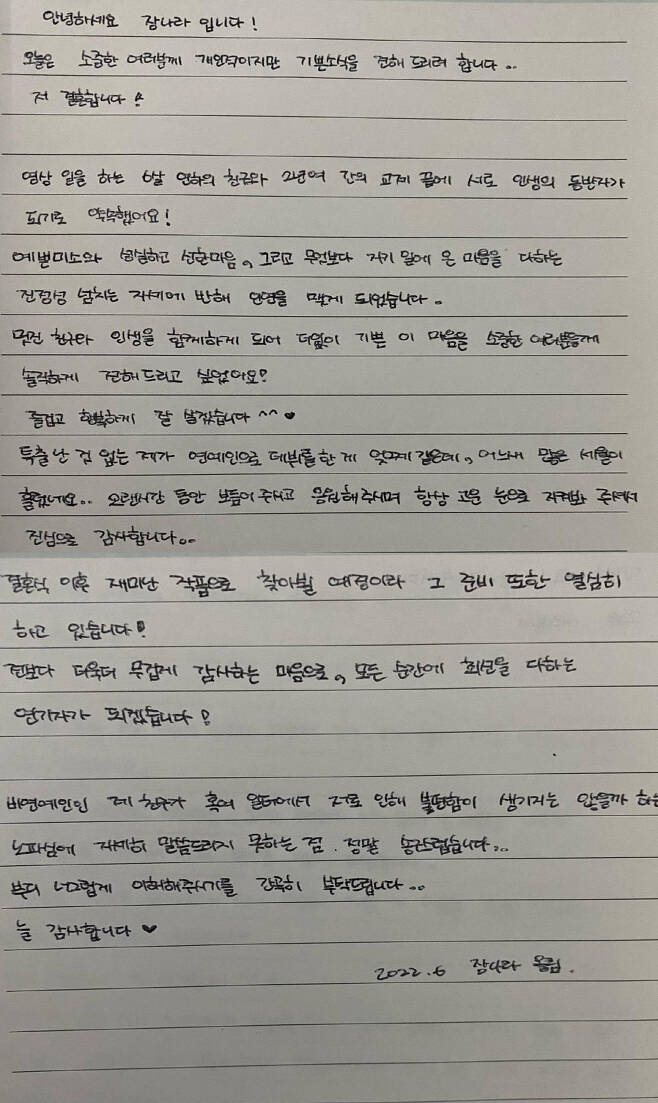 안녕하세요 장나라 입니다!
오늘은 소중한 여러분께 개인적이지만 기쁜소식을 전해 드리려 합니다..
저 결혼합니다!
영상 일을 하는 6살 연하의 친구와 2년여 간의 교제 끝에 서로 인생의 동반자가
되기로 약속했어요!
예쁜미소와 성실하고 선한마음, 그리고 무엇보다 자기 일에 온 마음을 다하는
진정성 넘치는 자세에 반해 인연을 맺게 되었습니다.
멋진 친구와 인생을 함께하게 되어 더없이 기쁜 이 마음을 소중한 여러분들께
솔직하게 전해드리고 싶었어요!
즐겁고 행복하게 잘 살겠습니다^^ ♥
특출난 것 없는 제가 연예인으로 데뷔를 한 게 엊그제 같은데, 어느새 많은 세월이
흘렀네요.. 오랜시간 동안 보듬어 주시고 응원해주시며 항상 고운 눈으로 지켜봐 주셔서
진심으로 감사합니다..
결혼식 이후 재미난 작품으로 찾아뵐 예정이라 그 준비 또한 열심히
하고 있습니다!
전보다 더욱더 무겁게 감사하는 마음으로, 모든 순간에 최선을 다하는
연기자가 되겠습니다!
비연예인인 제 친구가 혹여 일터에서 저로 인해 불편함이 생기지는 않을까 하는
노파심에 자세히 말씀드리지 못하는 점. 정말 송구스럽습니다...
부디 너그럽게 이해해주시기를 간곡히 부탁드립니다..
늘 감사합니다 ♥
2022.6 장나라 올림.